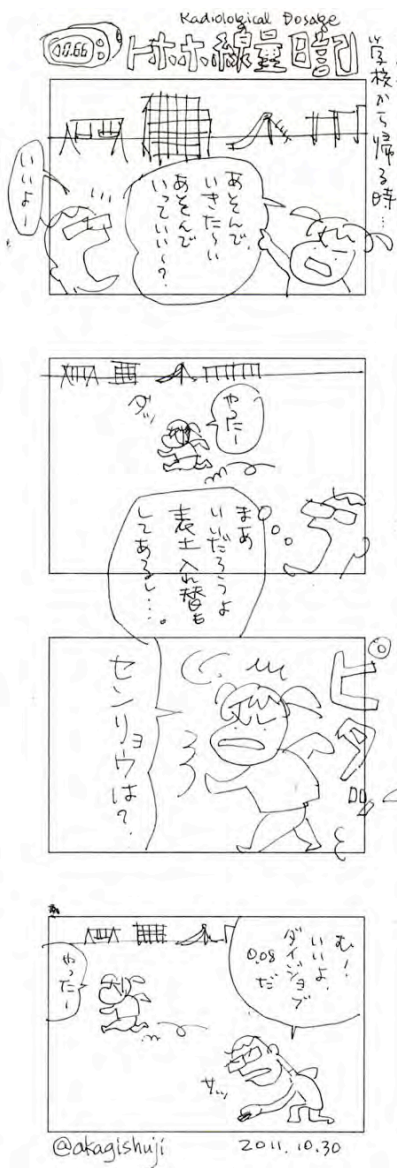 Radiological Dosage
0.66
トホホ線量日記
学校から帰る時…
あそんで
いきた〜い
あそんで
いっていい〜?
いいよー
やったー
ダッ
まあ
いいだろうよ
表土入れ替も
してあるし…。
ピタッ
センリョウは?
む!
いいよ、
ダイジョブ
0.08だ
サッ
やったー
@akagishuji
2011.10.30